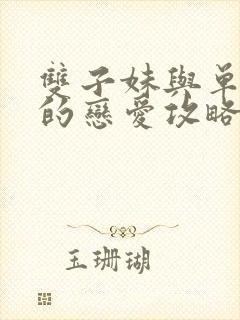 雙子妹與單
的戀愛攻略
玉珊瑚